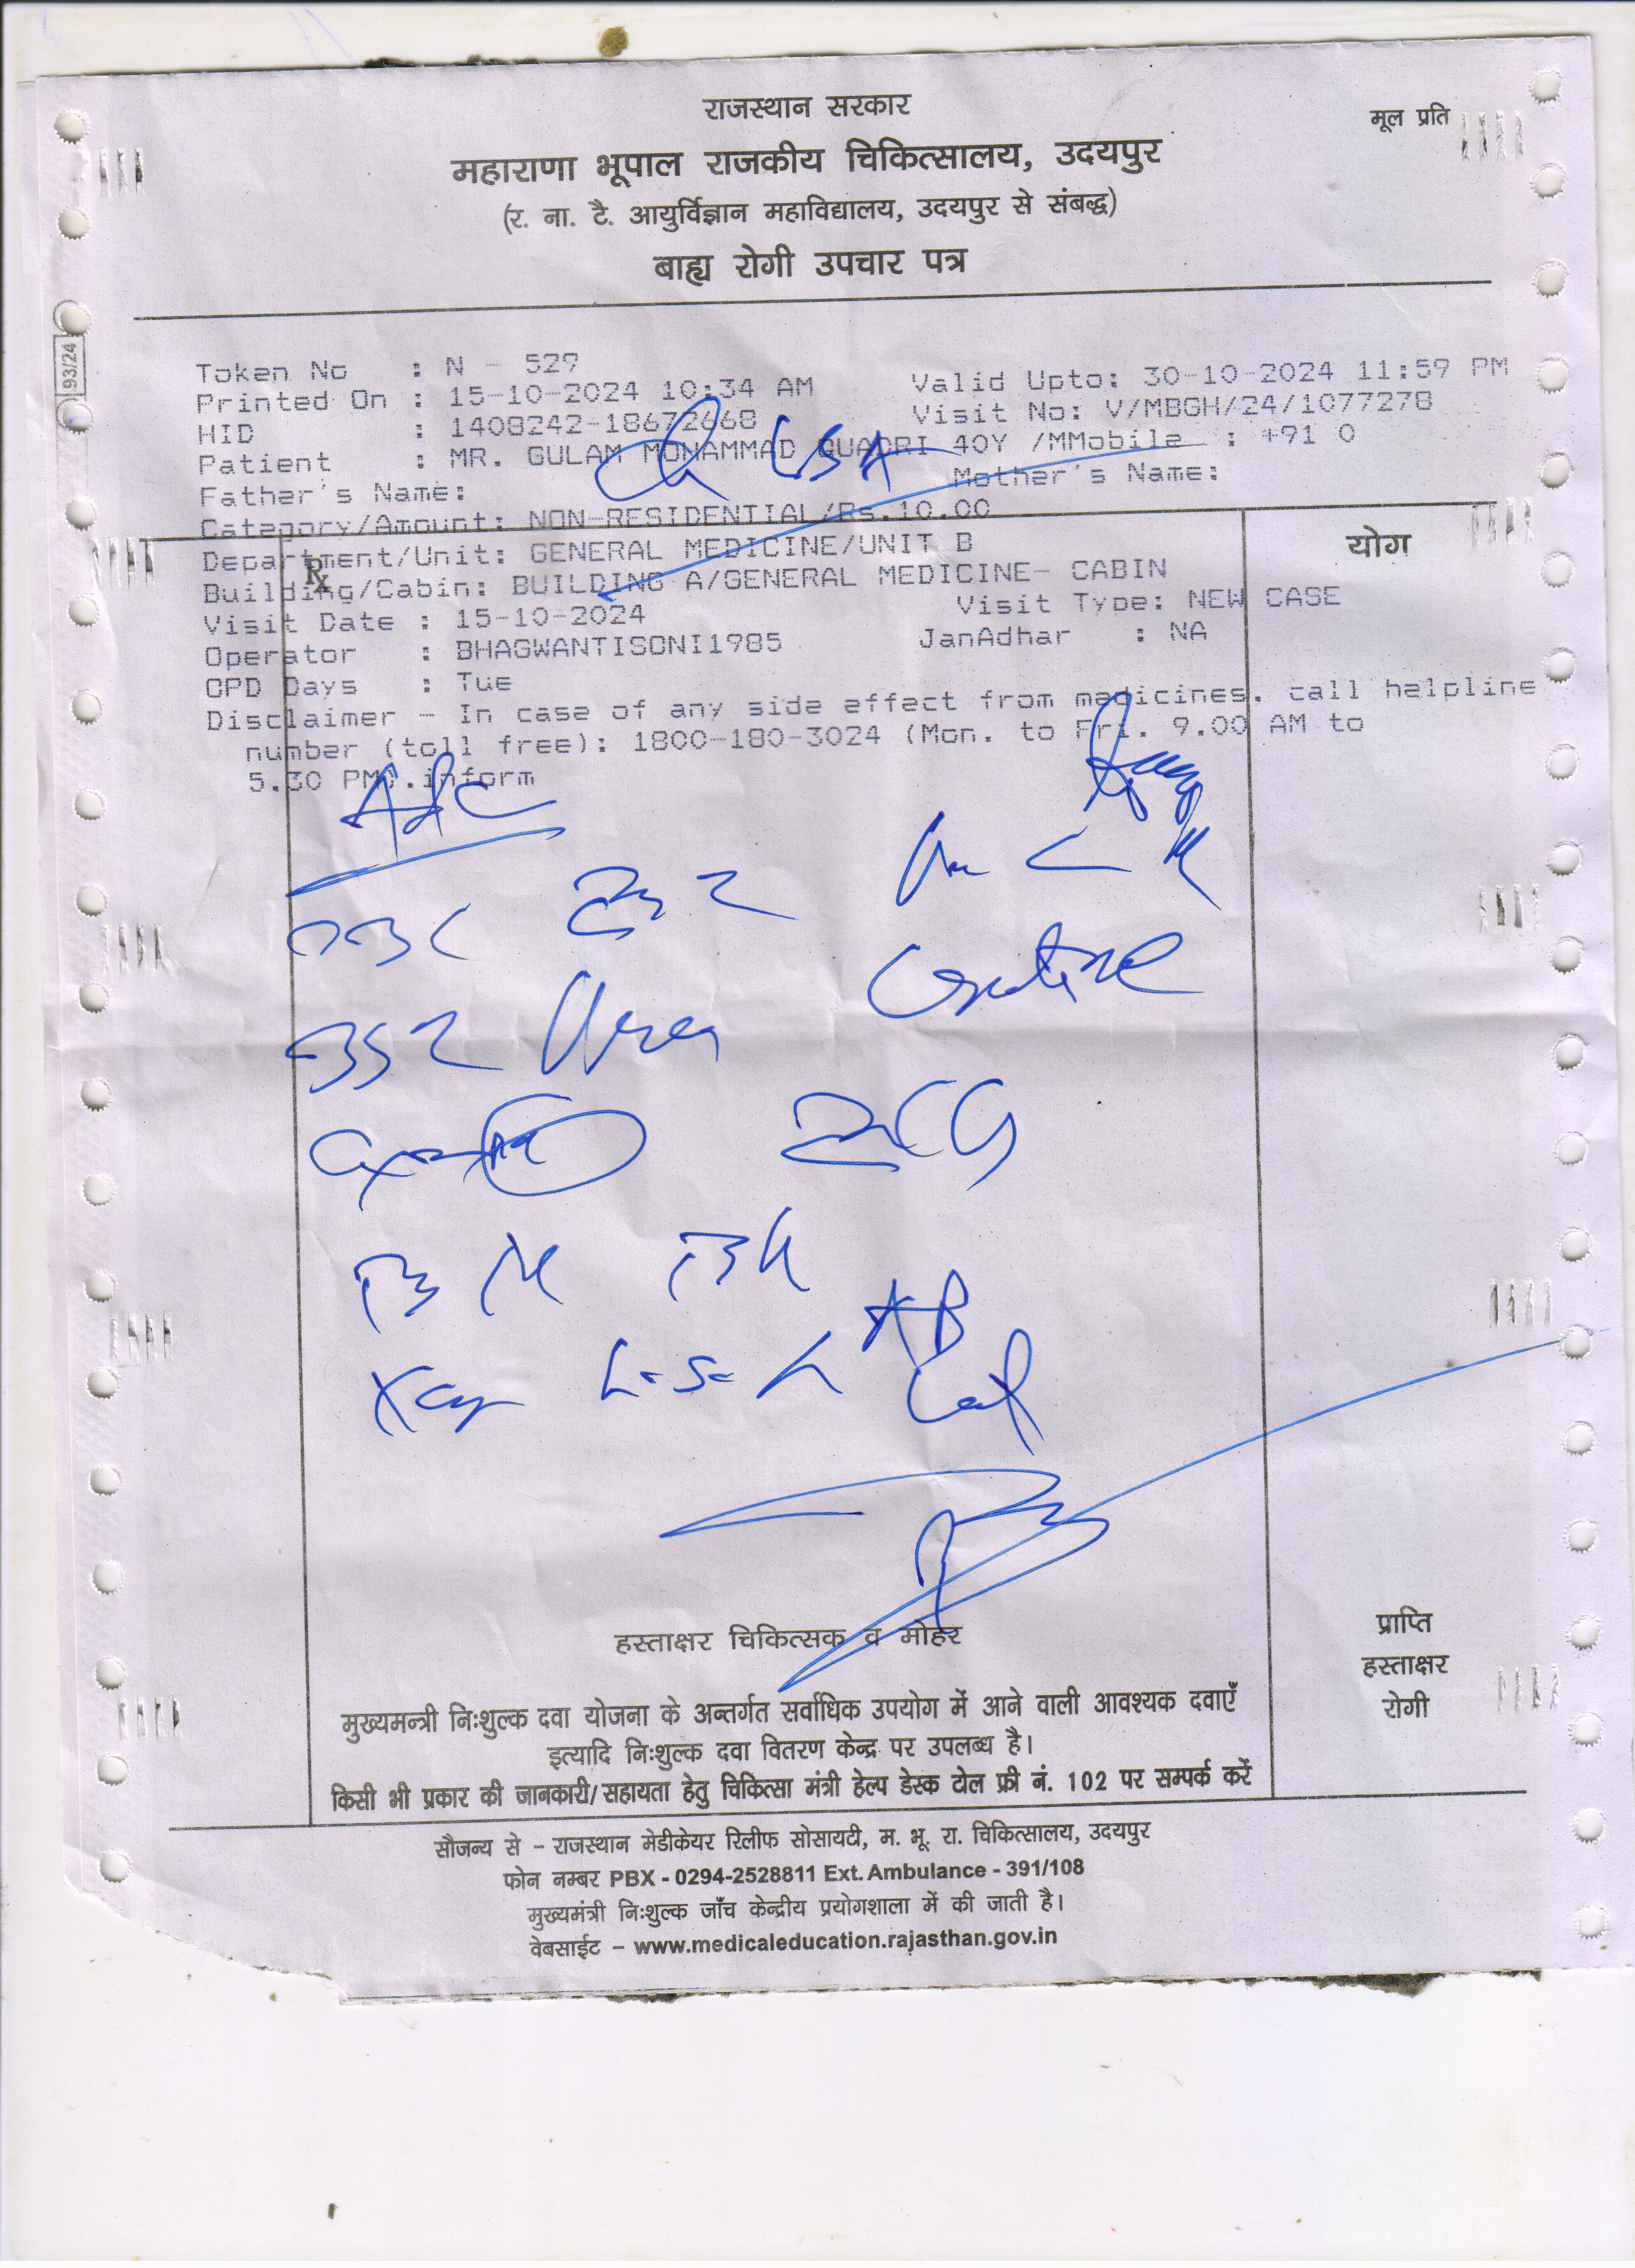 राजस्थान सरकार
मूल प्रति
महाराणा भूपाल राजकीय चिकित्सालय, उदयपुर
(र. ना. टै. आयुर्विज्ञान महाविद्यालय, उदयपुर से संबद्ध)
बाह्य रोगी उपचार पत्र
93/24
Token No : N - 529
Printed On : 15-10-2024 10:34 AM Valid Upto: 30-10-2024 11:59 PM
HID : 1408242-18672668 Visit No: V/MBGH/24/1077278
Patient : MR. GULAM MOHAMMAD QUADRI 40Y /MMobile : +91 0
Father's Name: Mother's Name:
Category/Amount: NON-RESIDENTIAL/Rs.10.00
योग
Department/Unit: GENERAL MEDICINE/UNIT B
Rx
Building/Cabin: BUILDING A/GENERAL MEDICINE- CABIN
Visit Date : 15-10-2024 Visit Type: NEW CASE
Operator : BHAGWANTISONI1985 JanAdhar : NA
OPD Days : Tue
Disclaimer - In case of any side effect from medicines. call helpline
number (toll free): 1800-180-3024 (Mon. to Fri. 9.00 AM to
5.30 PM).inform
Urea
ECG
Xray L-S- AP
Lat
हस्ताक्षर चिकित्सक व मोहर
प्राप्ति
हस्ताक्षर
रोगी
मुख्यमन्त्री निःशुल्क दवा योजना के अन्तर्गत सर्वाधिक उपयोग में आने वाली आवश्यक दवाएँ
इत्यादि निःशुल्क दवा वितरण केन्द्र पर उपलब्ध है।
किसी भी प्रकार की जानकारी/सहायता हेतु चिकित्सा मंत्री हेल्प डेस्क टोल फ्री नं. 102 पर सम्पर्क करें
सौजन्य से – राजस्थान मेडीकेयर रिलीफ सोसायटी, म. भू. रा. चिकित्सालय, उदयपुर
फोन नम्बर PBX - 0294-2528811 Ext. Ambulance - 391/108
मुख्यमंत्री निःशुल्क जाँच केन्द्रीय प्रयोगशाला में की जाती है।
वेबसाईट – www.medicaleducation.rajasthan.gov.in